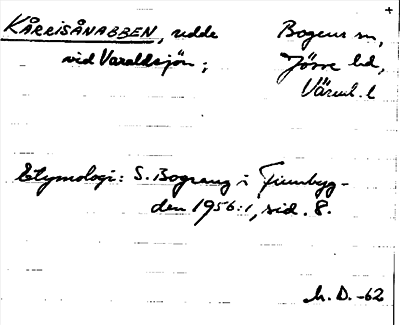 KÅRRISÅNABBEN, udde
vid Varaldsjön;
Bogens sn,
Jösse hd,
Värml. l
Etymologi: S. Bograng i Finnbyg-
den 1956:1, sid. 8.
h. D. -62